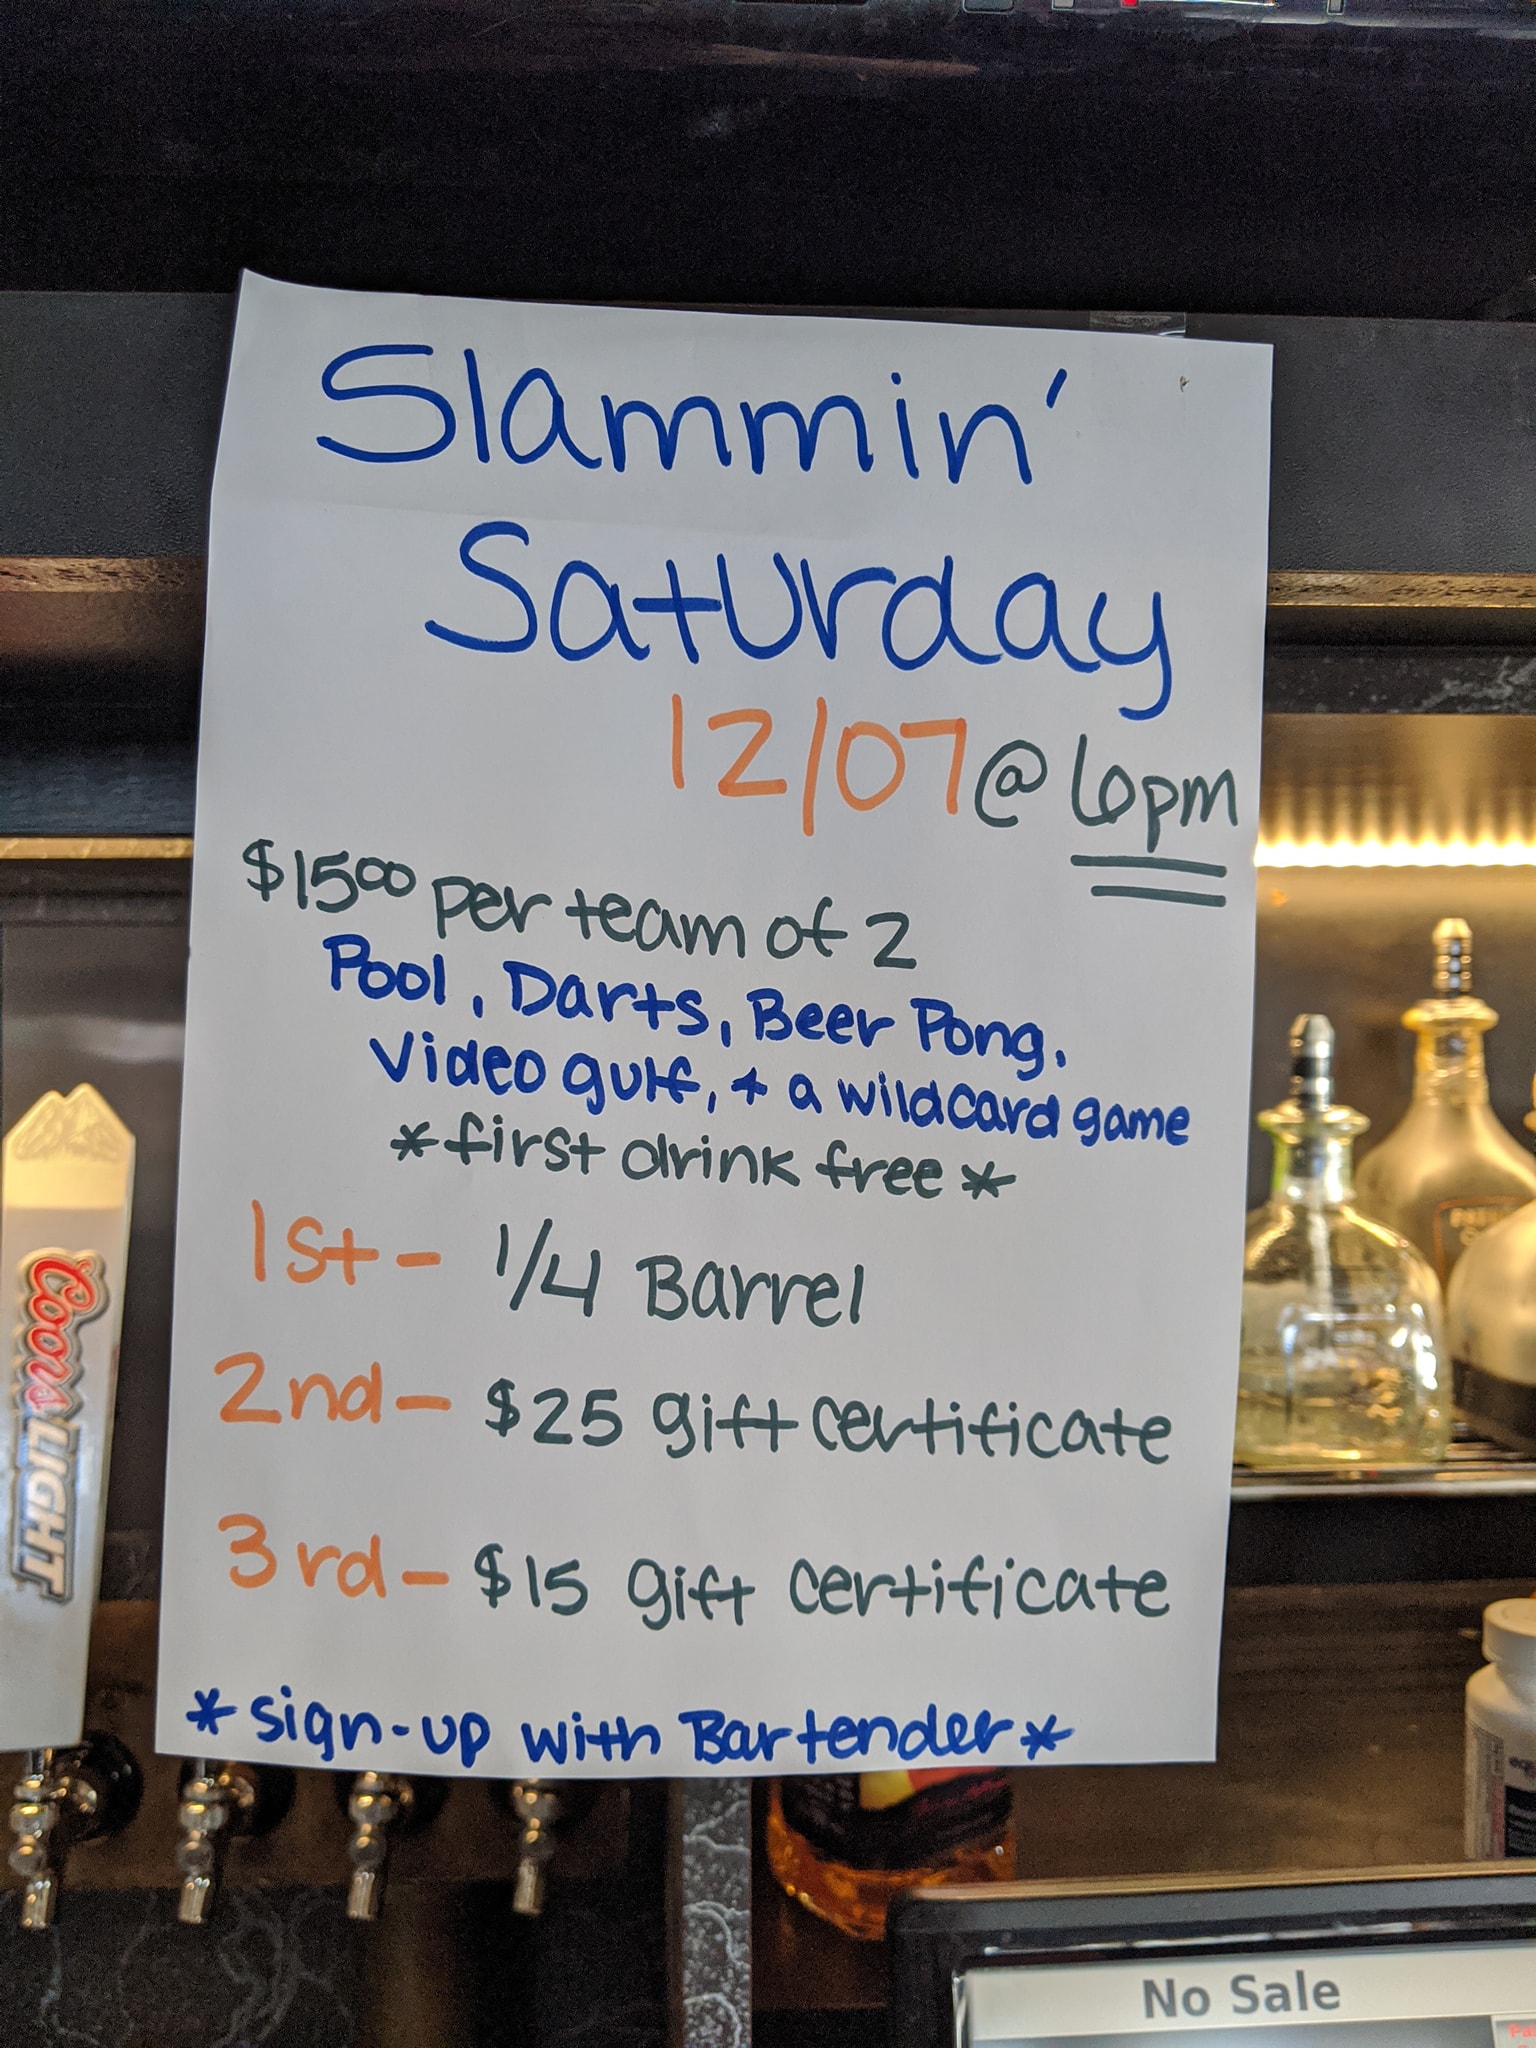 Slammin'
Saturday
12/07 @ 6pm
$15⁰⁰ per team of 2
Pool, Darts, Beer Pong,
Video gulf, + a wildcard game
*first drink free*
1st - 1/4 Barrel
2nd - $25 gift certificate
3rd - $15 gift certificate
*sign-up with Bartender*
Coors LIGHT
No Sale